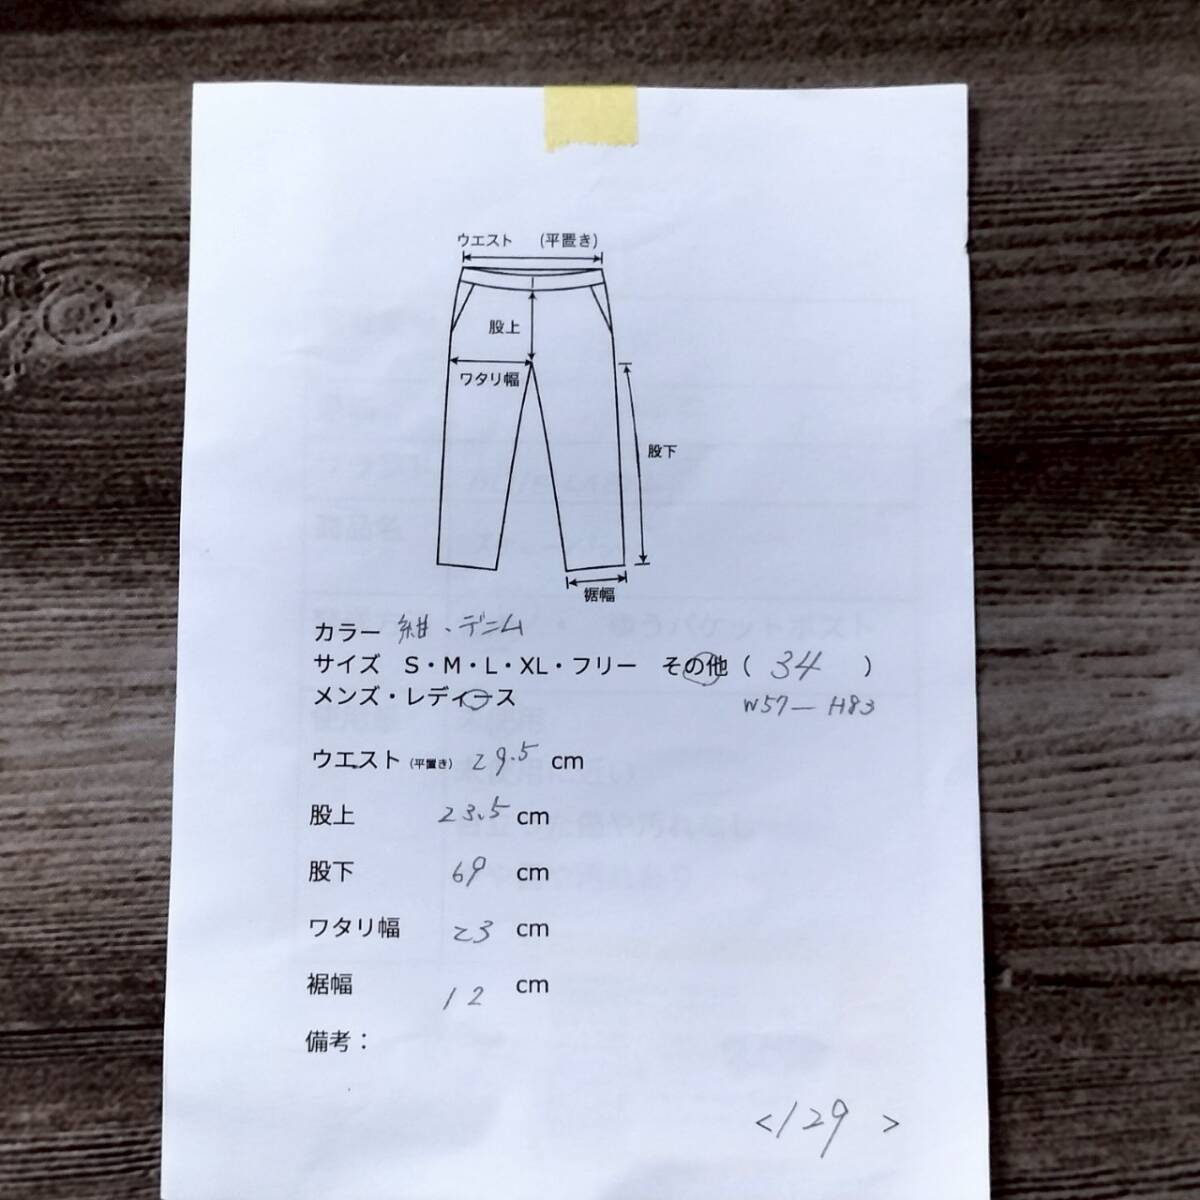 ウエスト (平置き)
股上
ワタリ幅
股下
裾幅
カラー 紺、デニム
サイズ S・M・L・XL・フリー その他 ( 34 )
メンズ・レディース
W57ー H83
ウエスト (平置き) 29.5 cm
股上 23.5 cm
股下 69 cm
ワタリ幅 23 cm
裾幅 12 cm
備考：
<129>